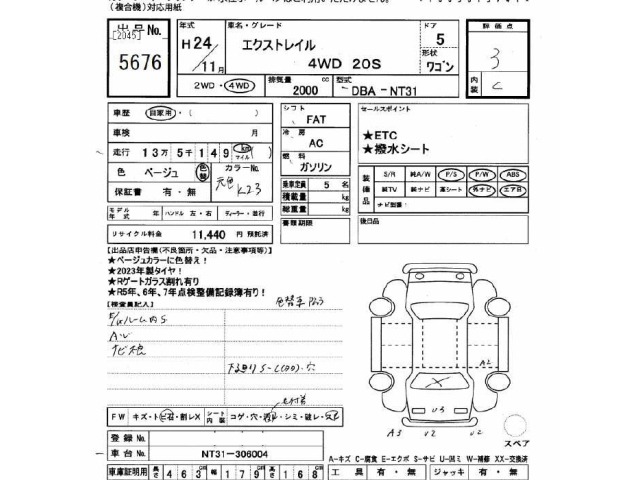 (複合機)対応用紙
出品No. [2045] 5676
年式 H24/11月
車名・グレード エクストレイル 4WD 20S
ドア 5
形状 ワゴン
評価点 3
内装 C
2WD・4WD
排気量 2000 cc
型式 DBA-NT31
車歴 自家用・( )
車検 月
走行 13万5千149 km マイル ( )
色 ベージュ 色替
カラーNo. 元色 K23
保証書 有・無
モデル年式 年 ハンドル 左・右 ディーラー・並行
リサイクル料金 11,440 円 預託済
シフト FAT
冷房 AC
燃料 ガソリン
乗車定員 5 名
積載量 kg
総重量 kg
書類期限
セールスポイント
★ETC
★撥水シート
装備品 S/R 純A/W P/S P/W ABS
純TV 純ナビ 革シート 外ナビ エアB
ナビ型番:
後日品
【出品店申告欄(不良箇所・欠品・注意事項等)】
★ベージュカラーに色替え!
★2023年製タイヤ!
★Rゲートガラス割れ有り
★R5年、6年、7年点検整備記録簿有り!
【検査員記入】
色替車
ルーム内S
下廻りS-C(00)・穴
FW キズ・トビ石・割レX
シート内装 コゲ・穴・シミ・破レ・スレ
登録No.
車台No. NT31-306004
車庫証明用 長さ 463 cm 幅 179 cm 高さ 168 cm
A2
U3
A3 U2 U2
スペア
A-キズ C-腐食 E-エクボ S-サビ U-凹ミ W-補修 XX-交換済
工具 有・無 ジャッキ 有・無